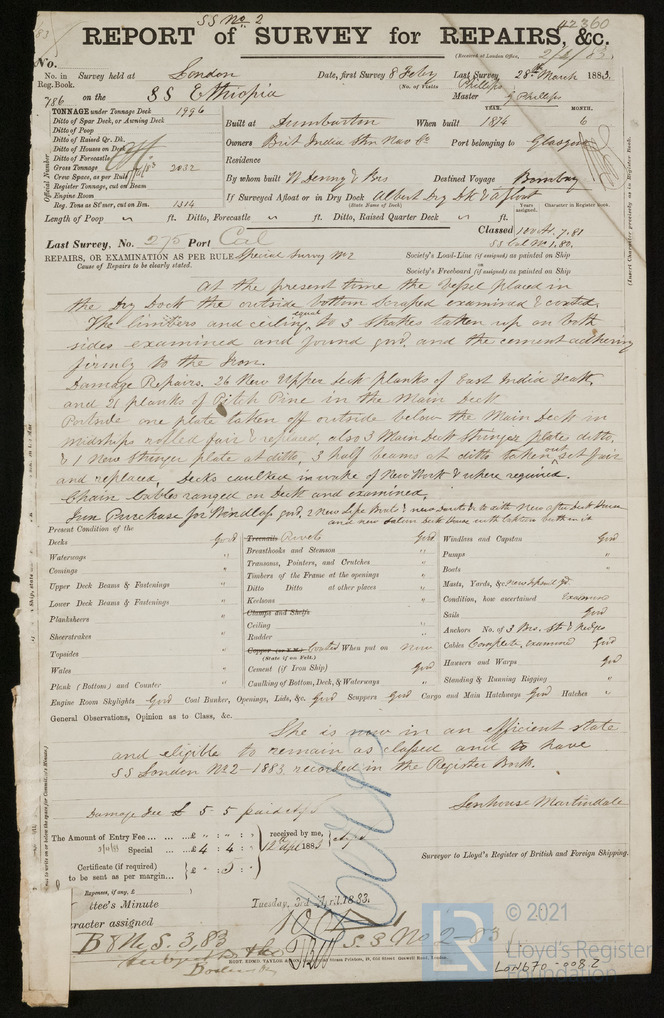 SS No 2
42360
REPORT of SURVEY for REPAIRS, &c.
(Received at London Office,
No.
No. in Survey held at London Date, first Survey 8 Feby Last Survey 28th March 1883.
Reg. Book. (No. of Visits Phillips
786 on the SS Ethiopia Master J Phillips
TONNAGE under Tonnage Deck 1996
Ditto of Spar Deck, or Awning Deck
Ditto of Poop
Ditto of Raised Qr. Dk.
Ditto of Houses on Deck
Ditto of Forecastle
Gross Tonnage 2032
Crew Space, as per Rule
Register Tonnage, cut on Beam
Engine Room
Reg. Tons as St'mer, cut on Bm. 1314
Official Number
YEAR. MONTH.
Built at Dumbarton When built 1874 6
Owners Brit India Stm Nav Co Port belonging to Glasgow
Residence
By whom built W Denny & Bros Destined Voyage Bombay
If Surveyed Afloat or in Dry Dock Albert Dry Dk & afloat
(State Name of Dock)
Years assigned. Character in Register Book.
(Insert Character precisely as in Register Book.
Length of Poop ft. Ditto, Forecastle ft. Ditto, Raised Quarter Deck ft.
Classed 100 A1. 7.81
SS Cal No 1.80.
Last Survey, No. 275 Port Cal
REPAIRS, OR EXAMINATION AS PER RULE Special Survey No 2
Cause of Repairs to be clearly stated.
Society's Load-Line (if assigned) as painted on Ship
or
Society's Freeboard (if assigned) as painted on Ship
At the present time the Vessel placed in
the Dry Dock the outside bottom scraped examined & coated.
The limbers and ceiling equal to 3 strakes taken up on both
sides examined and found good and the cement adhering
firmly to the Iron.
Damage Repairs. 26 New Upper deck planks of East India Teak,
and 21 planks of Pitch Pine in the Main Deck
Portside one plate taken off outside below the Main Deck in
midships rolled fair & replaced, also 3 Main Deck stringer plate ditto,
& 1 New Stringer plate at ditto, 3 half beams at ditto taken out set fair
and replaced, Decks caulked in wake of New Work & where required.
Chain Cables ranged on Deck and examined,
Iron Purchase for Windlass good, 2 New Life Boats & new davits to ditto New after deck House
and new Saloon deck House
Present Condition of the
Decks Good
Waterways "
Comings "
Upper Deck Beams & Fastenings "
Lower Deck Beams & Fastenings "
Planksheers "
Sheerstrakes "
Topsides "
Wales "
Plank (Bottom) and Counter "
Treenails Rivets Good
Breasthooks and Stemson "
Transoms, Pointers, and Crutches "
Timbers of the Frame at the openings "
Ditto Ditto at other places "
Keelsons "
Clamps and Shelfs
Ceiling "
Rudder "
Copper (or Y.M.) Coated When put on now
(State if on Felt.)
Cement (if Iron Ship) Good
Caulking of Bottom, Deck, & Waterways "
Windlass and Capstan Good
Pumps "
Boats "
Masts, Yards, &c.
Condition, how ascertained Examined
Sails Good
Anchors No. of 3 Brs. St. & Kedges
Cables Complete, examined Good
Hawsers and Warps Good
Standing & Running Rigging "
Engine Room Skylights Good Coal Bunker, Openings, Lids, &c. Good Scuppers Good Cargo and Main Hatchways Good Hatches "
General Observations, Opinion as to Class, &c.
She is now in an efficient state
and eligible to remain as classed and to have
SS London No 2-1883 recorded in the Register Book.
Damage Fee £ 5 5 paid
Senhouse Martindale
The Amount of Entry Fee ... ... ...£ " : " : "
Special ... ...£ 4 : 4 : "
received by me,
12 Apl 1883
Certificate (if required)
to be sent as per margin.
Surveyor to Lloyd's Register of British and Foreign Shipping.
Expenses, if any, £
ttee's Minute Tuesday, 3rd April 1883.
racter assigned 100A1
B & MS. 3,83 S.S No 2-83
© 2021
Lloyd's Register
Foundation
LR
LON670-0082